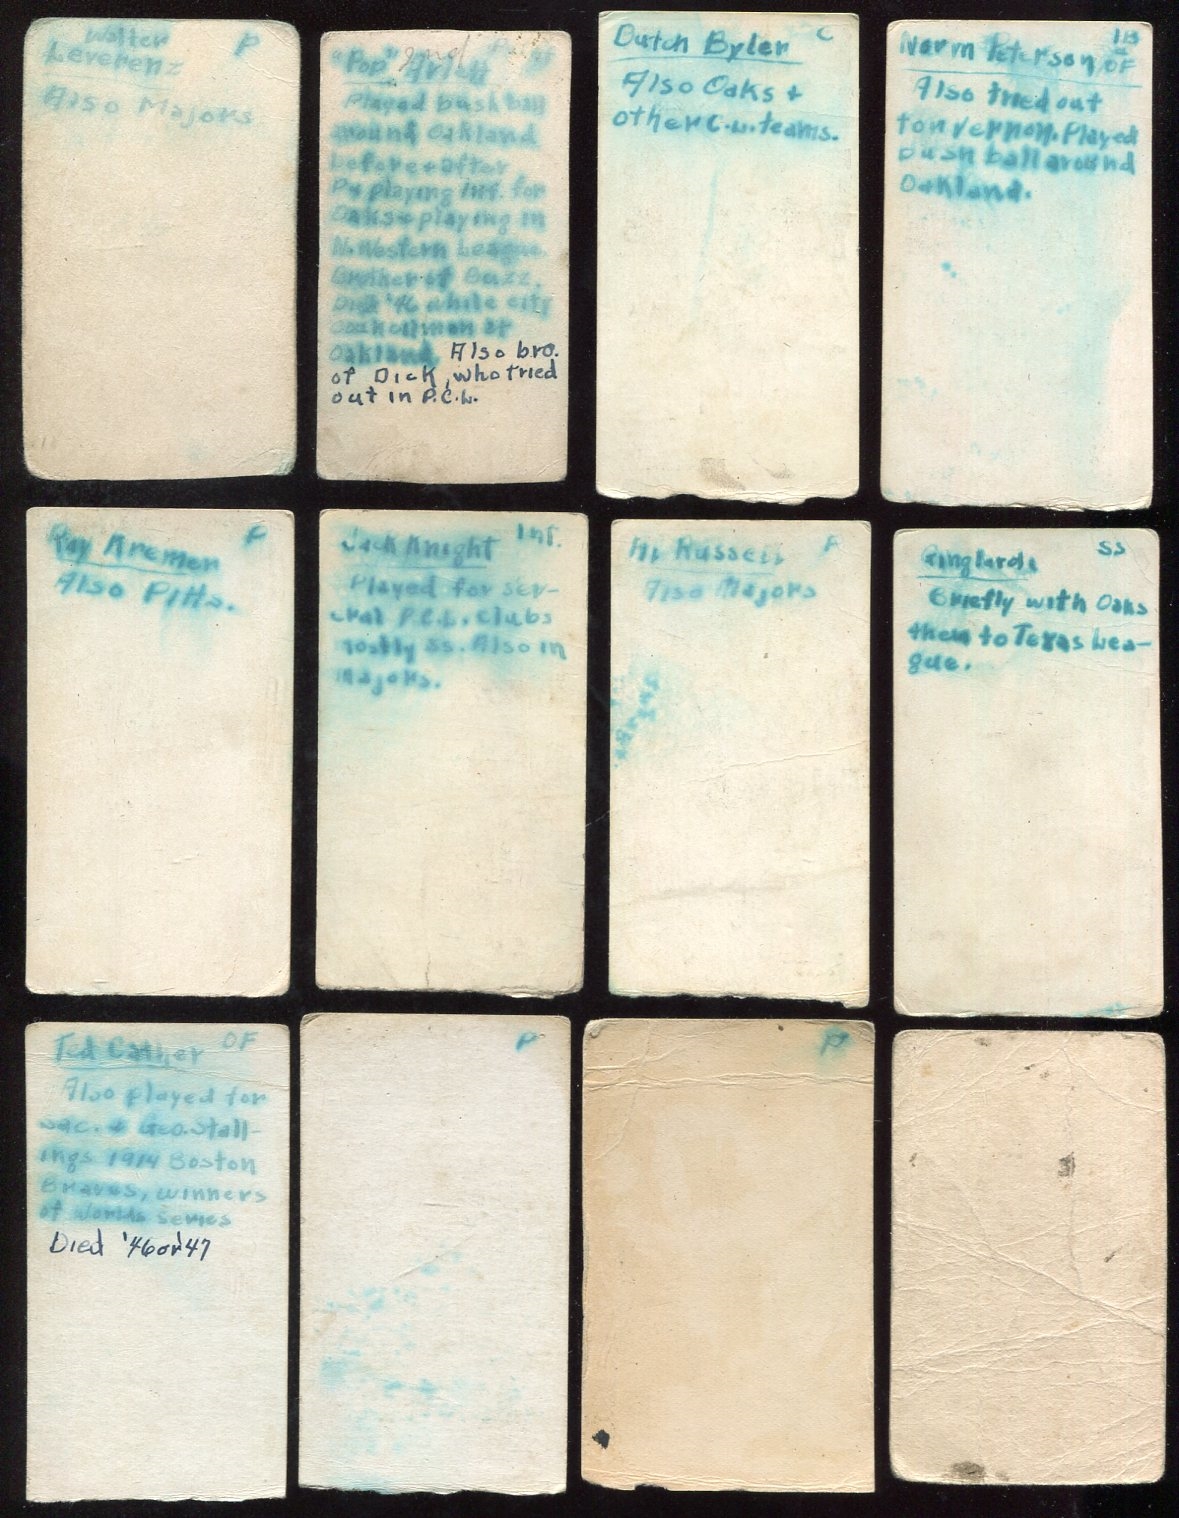 Walter P
Leverenz
Also Majors
"Pop" Arlett
2nd
Played bush ball
around Oakland
before + after
playing Inf. for
Oaks + playing in
N. Western League.
Brother of Buzz.
Died '46 while city
councilman at
Oakland. Also bro.
of Dick, who tried
out in P.C.L.
Dutch Byler C
Also Oaks +
other C.L. teams.
Norm Peterson 1B
OF
Also tried out
for Vernon. Played
bush ball around
Oakland.
Ray Kremer P
Also Pitts.
Jack Knight Inf.
Played for sev-
eral P.C.L. clubs
mostly SS. Also in
Majors.
Hi Russell P
Also Majors
SS
Briefly with Oaks
then to Texas Lea-
gue.
Ted Cather OF
Also played for
Sac. + Geo. Stall-
ings 1914 Boston
Braves, winners
of Worlds Series
Died '46 or '47
P
P